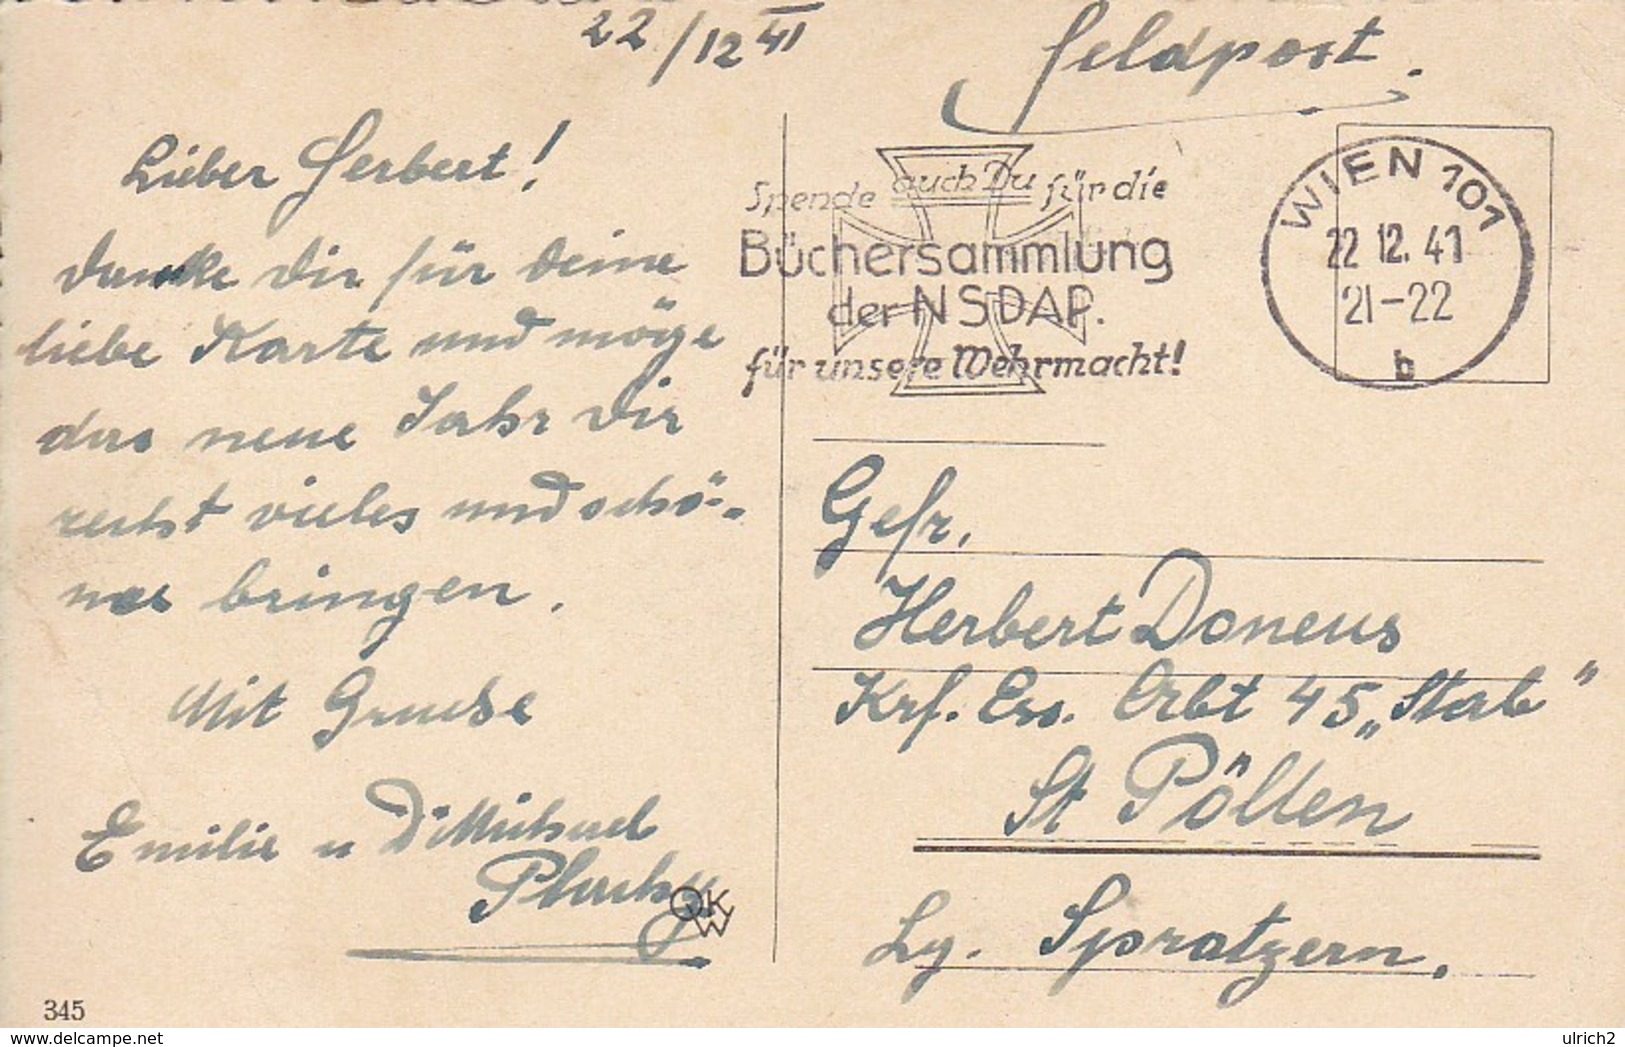 22/12 41
Feldpost.
Lieber Herbert!
danke dir für deine
liebe Karte und möge
das neue Jahr dir
recht vieles und schö-
nes bringen.
Mit Grusse
Emilie u Michael
Plachy
OKW
345
Spende auch Du für die
Büchersammlung
der NSDAP.
für unsere Wehrmacht!
WIEN 101
22 12. 41
21-22
b
Gefr.
Herbert Doneus
Krf. Ers. Abt 45 „Stab"
St Pölten
Lg. Spratzern.
delcampe.net
ulrich2